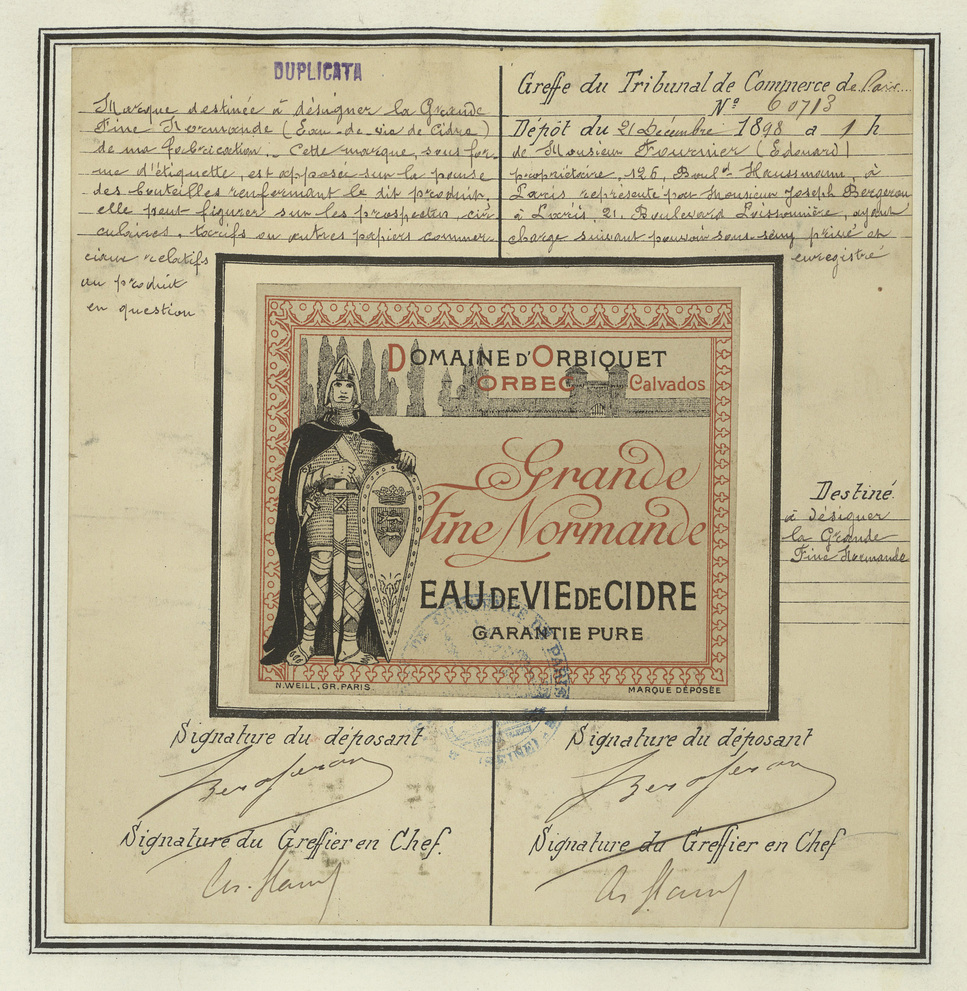 DUPLICATA
Marque destinée à désigner la Grande
Fine Normande (Eau-de-vie de Cidre)
de ma fabrication. Cette marque, sous for-
me d'étiquette, est apposée sur la panse
des bouteilles renfermant le dit produit,
elle peut figurer sur les prospectus, cir-
culaires, tarifs ou autres papiers commer-
ciaux relatifs
au produit
en question
Greffe du Tribunal de Commerce de Paris
Nº 60713
Dépôt du 21 Décembre 1898 à 1 h
de Monsieur Fournier (Edouard)
propriétaire, 126, Boulᵈ Haussmann, à
Paris représenté par Monsieur Joseph Bergeron
à Paris, 21, Boulevard Poissonnière, ayant
charge suivant pouvoir sous-seing privé et
enregistré
DOMAINE D'ORBIQUET
ORBEC Calvados
Grande
Fine Normande
EAU DE VIE DE CIDRE
GARANTIE PURE
N.WEILL, GR. PARIS
MARQUE DÉPOSÉE
Destiné
à désigner
la Grande
Fine Normande
DE COMMERCE DE PARIS
(SEINE)
Signature du déposant
Bergeron
Signature du Greffier en Chef.
Signature du déposant
Bergeron
Signature du Greffier en Chef